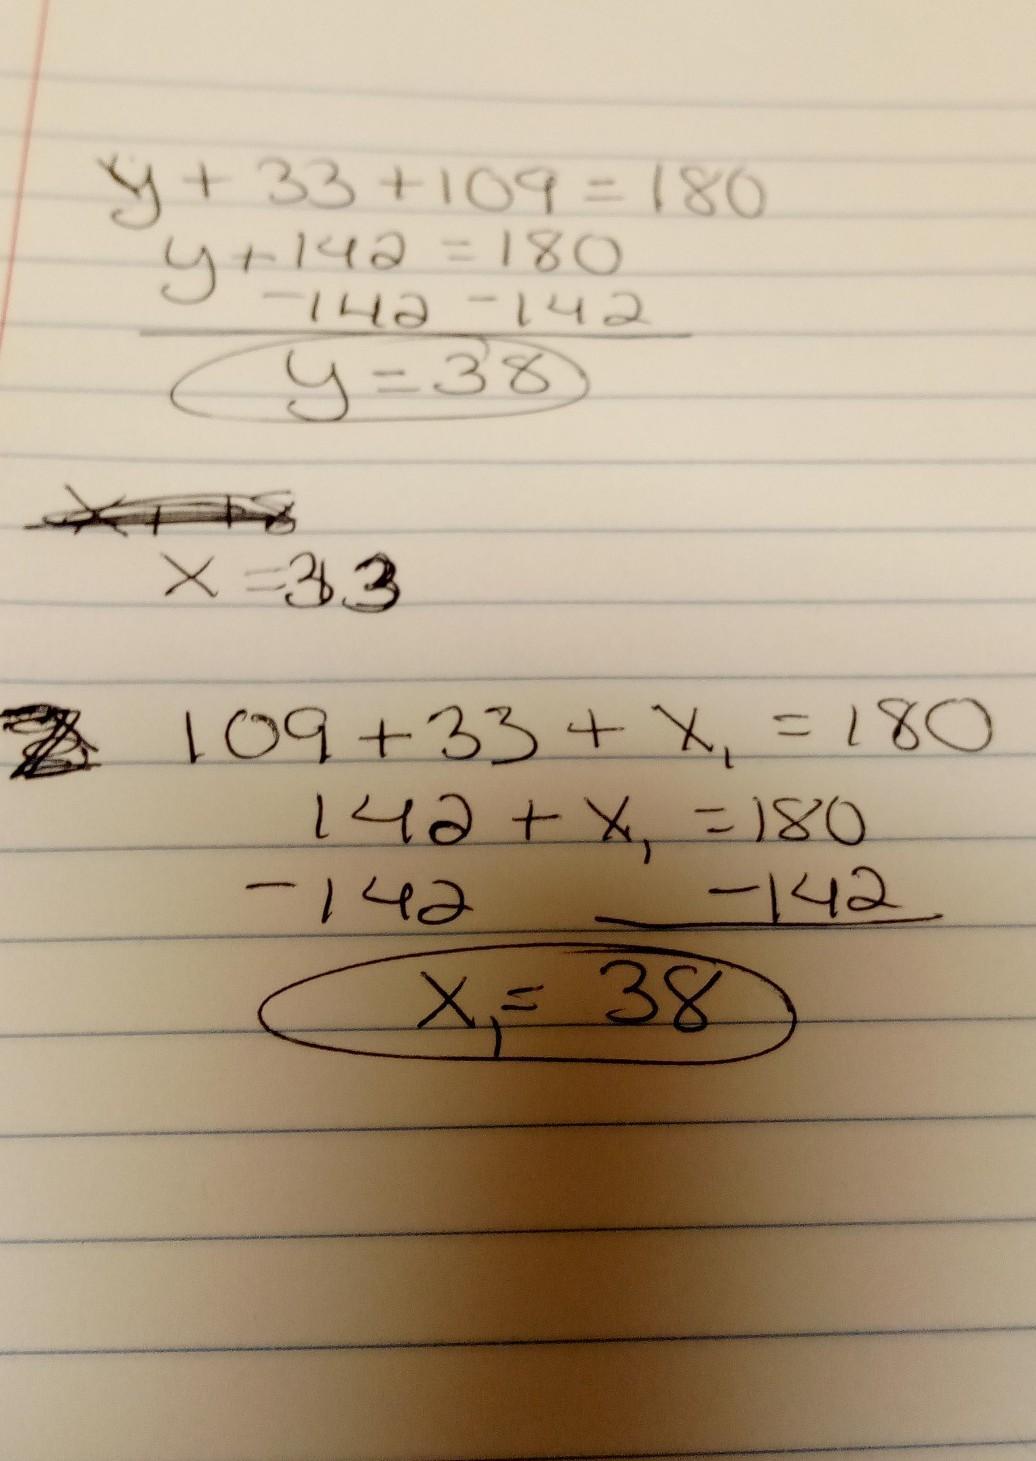 y + 33 + 109 = 180
y + 142 = 180
-142 -142
y = 38
x = 33
109 + 33 + x₁ = 180
142 + x₁ = 180
-142 -142
x₁ = 38